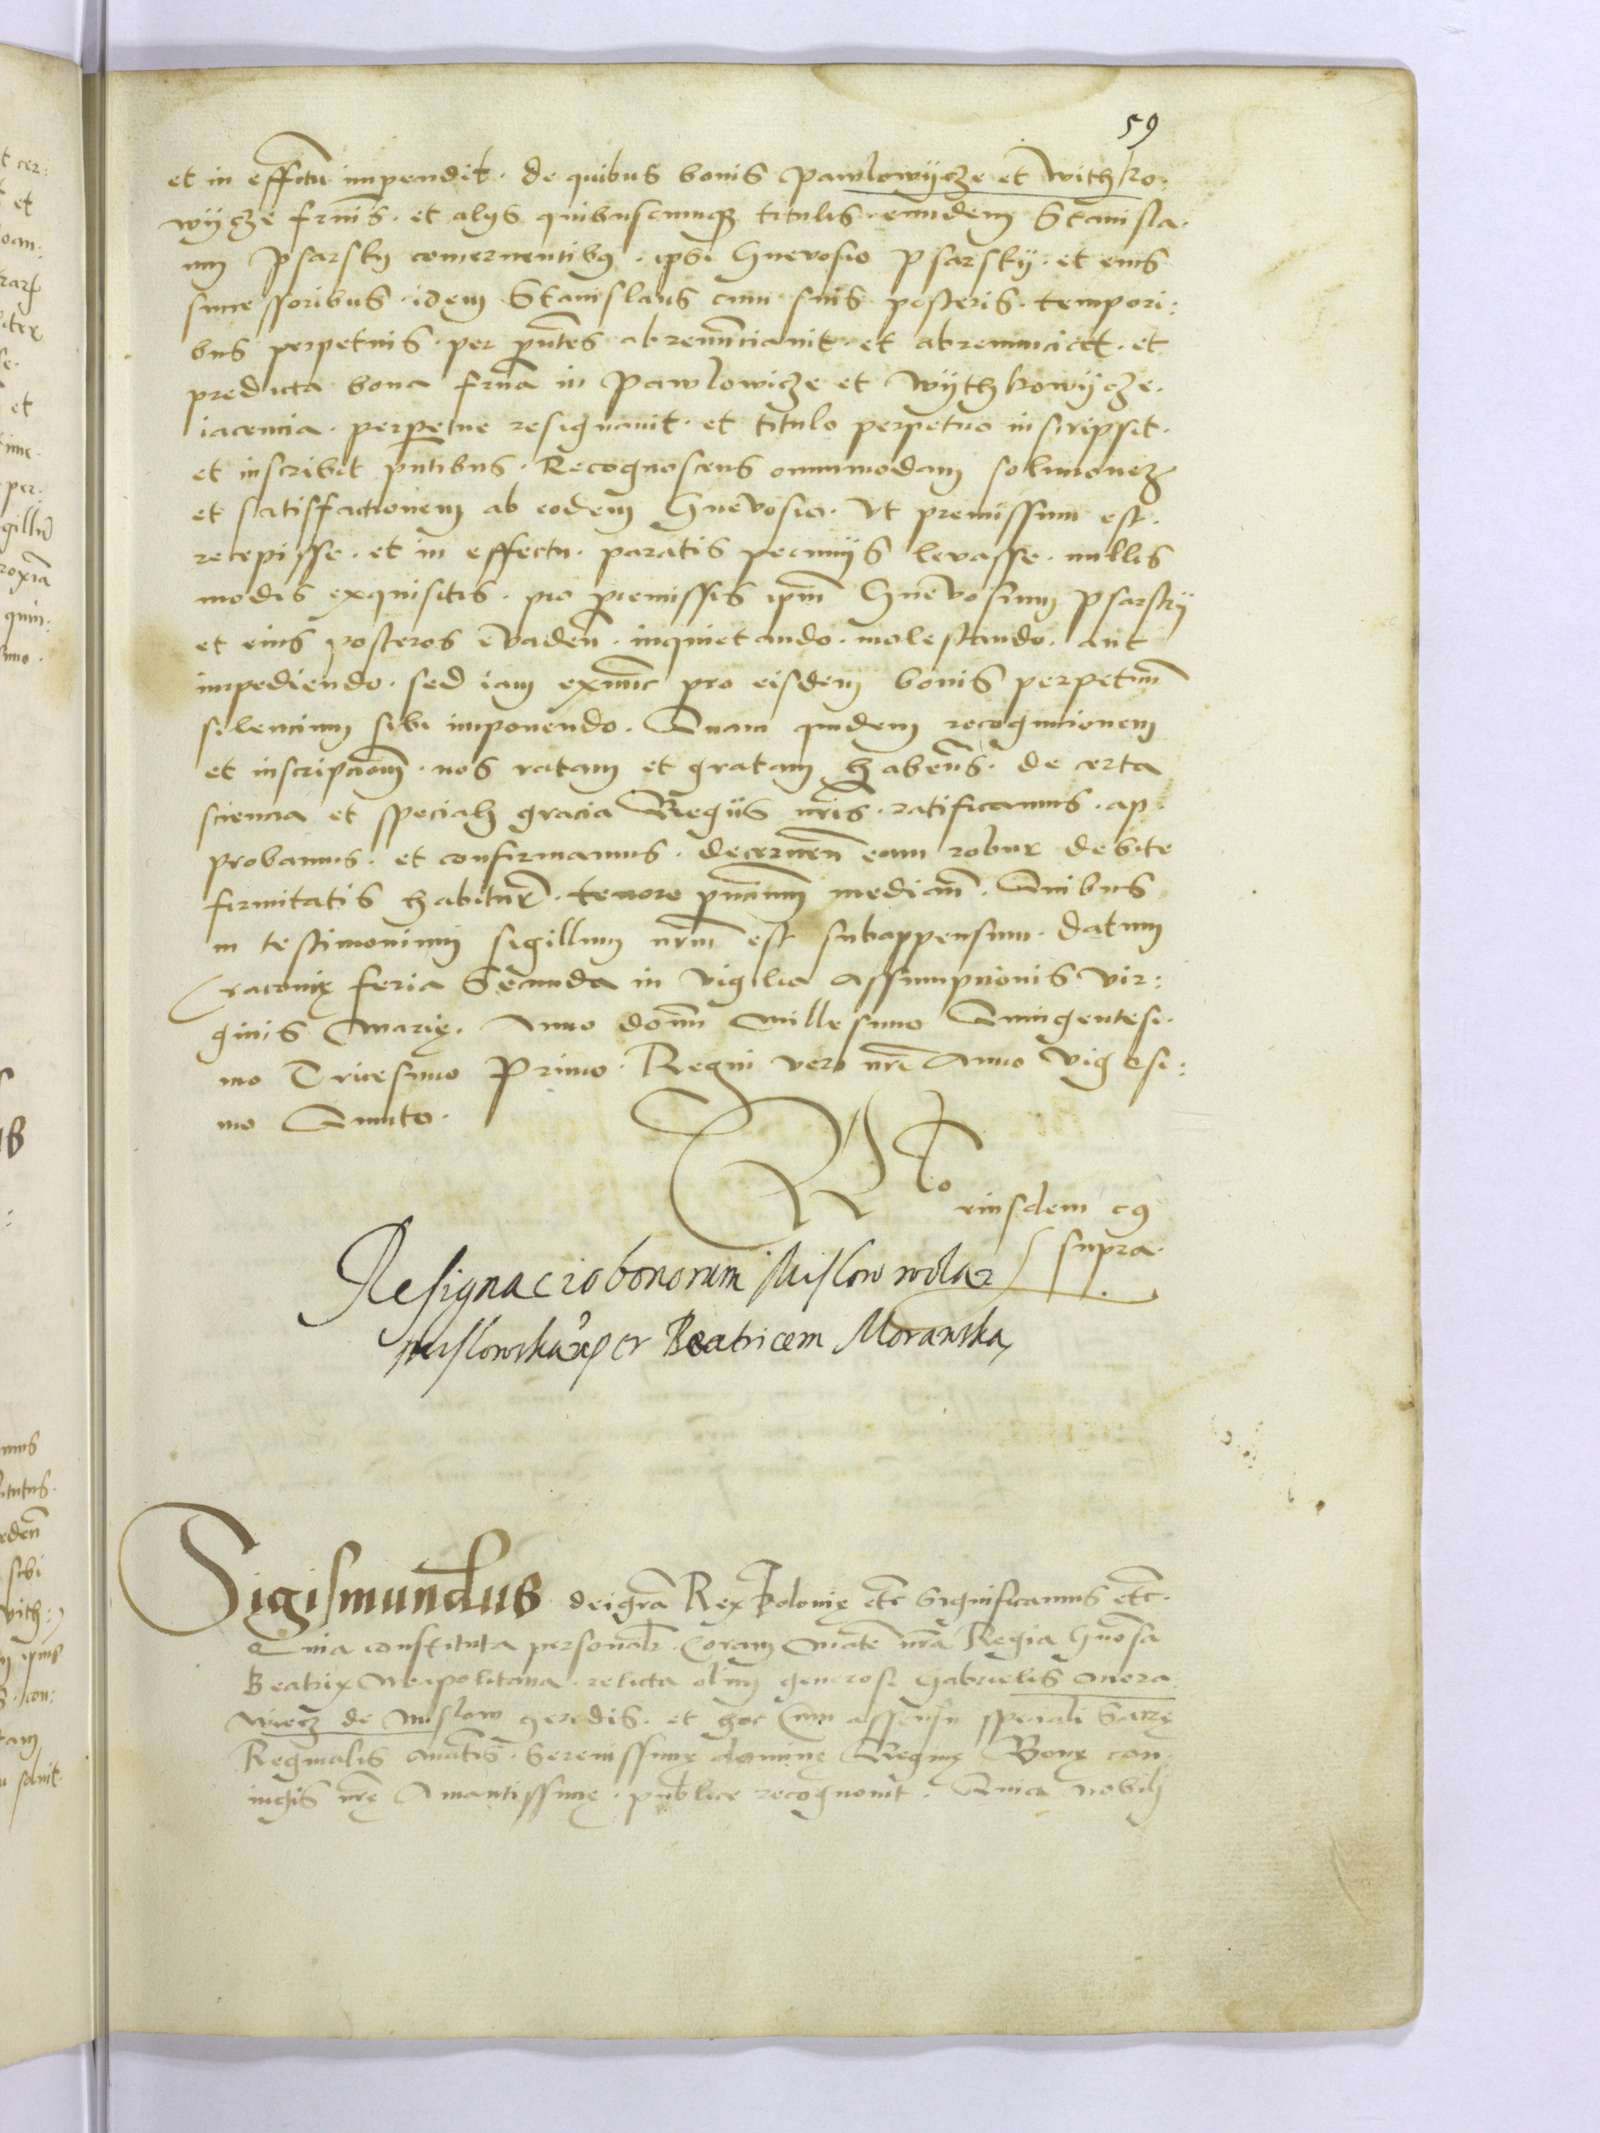 59
et in effectu impendit. de quibus bonis Pawlowÿcze et withko:
wÿcze frnis. et alijs quibuscumqꝫ titulis eundem Stanisla.
um Psarsky concernentibꝯ. ipsi Gnevosio Psarskÿ. et eius
successoribus idem Stanislaus cum suis posteris. tempori:
bus perpetuis. per pntes abrenunctiauit. et abrenunciat. et
predicta bona frna in Pawlowicze et Wÿthkowÿcze.
iacencia. perpetue resignauit. et titulo perpetuo inscripsit.
et inscribit pntibus. Recognoscens omnimodam solucionez
et satisfactionem ab eodem Gnevosio. Vt premissum est.
recepisse. et in effectu. paratis pecunijs levasse. nullis
modis exquisitis. pro premissis ipm Gnevosium Psarsky
et eius posteros evaden. inquietando. molestando. aut
impediendo. sed iam exnunc pro eisdem bonis perpetuum
silencium sibi imponendo. Quam quidem recognicionem
et inscripcionem. nos ratam et gratam habens. de certa
sciencia et speciali gracia Regijs nris. ratificamus. ap
probamus. et confirmamus. decernen eam robur debite
firmitatis habitur. tenore pncium median. Quibus
in testimonium sigillum nrm est subappensum. datum
Cracouię feria Secunda in vigilia Assumpcionis Vir:
ginis Marię. Anno domi Millesimo Quingentesi.
mo Tricesimo Primo. Regni vero nri Anno Vigesi:
mo Quinto.
Rto
eiusdem cꝯ
supra.
Resignacio bonorum Mislow
per Beatricem Morawska
Sigismundus dei gra Rex Polonię etc significamus etc.
Quia constituta personalr. Coram Mate nra Regia Gnosa
Beatrix Neapolitana. relicta olim generosi Gabrielis Mora
wiecz de Mislow heredis. et hoc Cum assensu speciali Sacrę
Reginalis Matis. Serenissimę domine Reginę Bonę con
iugis nrę Amantissimę. publice recognouit. Quia nobili